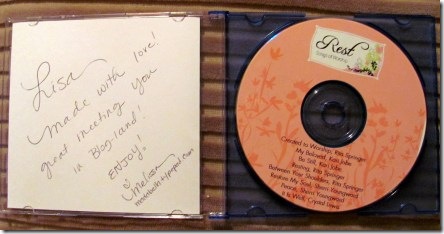 Lisa
made with love!
great meeting you
in Blog-land!
ENJOY!
Melissa
Rest
Songs of Worship
Created to Worship, Rita Springer
My Beloved, Kari Jobe
Be Still, Kari Jobe
Resting, Rita Springer
Between Your Shoulders, Rita Springer
Restore My Soul, Sherri Youngward
Peace, Sherri Youngward
It Is Well, Crystal Lewis